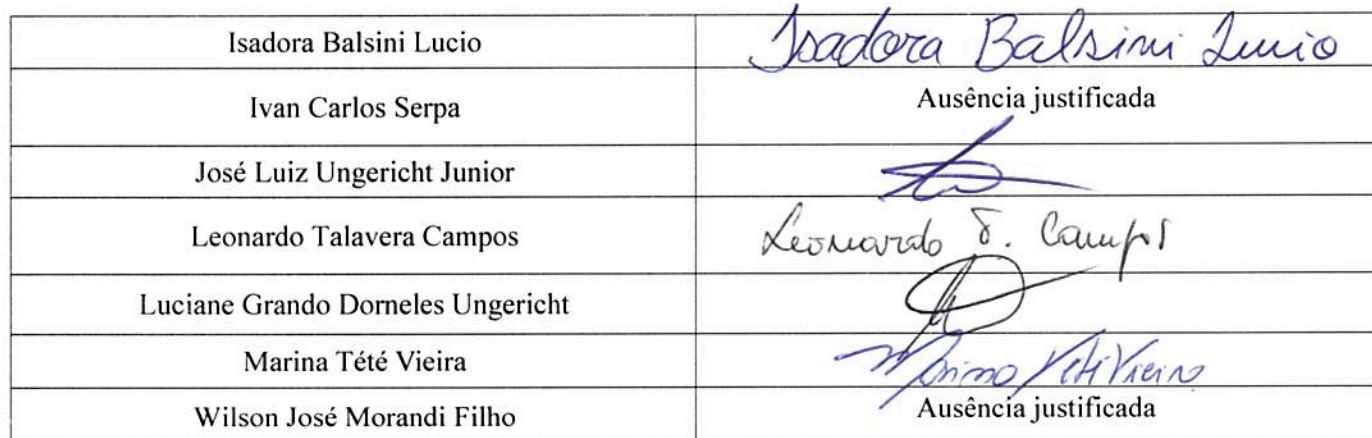 Isadora Balsini Lucio Isadora Balsini Lucio
Ivan Carlos Serpa Ausência justificada
José Luiz Ungericht Junior
Leonardo Talavera Campos Leonardo T. Campos
Luciane Grando Dorneles Ungericht
Marina Tété Vieira Marina Tété Vieira
Wilson José Morandi Filho Ausência justificada